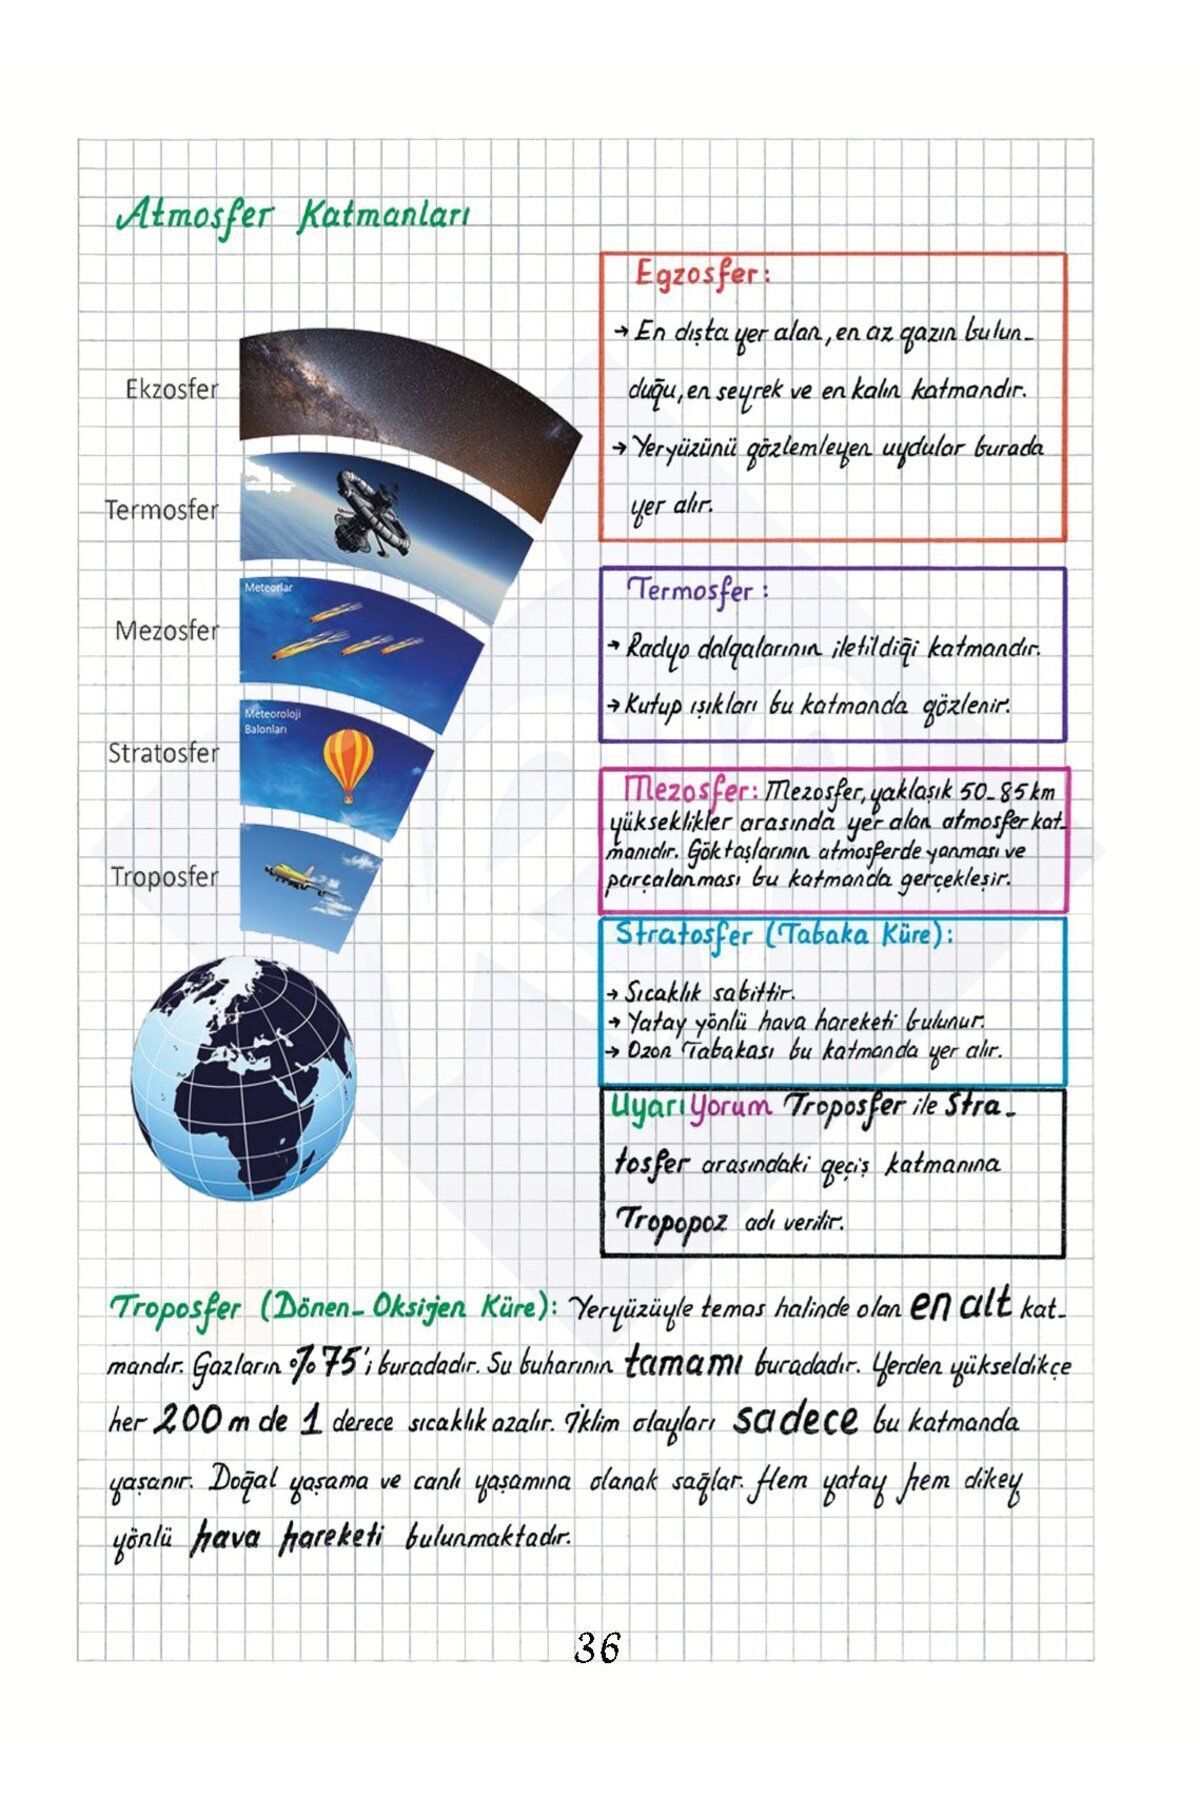 Atmosfer Katmanları
Ekzosfer
Termosfer
Meteorlar
Mezosfer
Meteoroloji
Balonları
Stratosfer
Troposfer
Egzosfer:
→ En dışta yer alan, en az gazın bulun-
duğu, en seyrek ve en kalın katmandır.
→ Yeryüzünü gözlemleyen uydular burada
yer alır.
Termosfer:
→ Radyo dalgalarının iletildiği katmandır.
→ Kutup ışıkları bu katmanda gözlenir.
Mezosfer: Mezosfer, yaklaşık 50-85 km
yükseklikler arasında yer alan atmosfer kat-
manıdır. Göktaşlarının atmosferde yanması ve
parçalanması bu katmanda gerçekleşir.
Stratosfer (Tabaka Küre):
→ Sıcaklık sabittir.
→ Yatay yönlü hava hareketi bulunur.
→ Ozon Tabakası bu katmanda yer alır.
UyarıYorum Troposfer ile Stra-
tosfer arasındaki geçiş katmanına
Tropopoz adı verilir.
Troposfer (Dönen-Oksijen Küre): Yeryüzüyle temas halinde olan en alt kat-
mandır. Gazların %75'i buradadır. Su buharının tamamı buradadır. Yerden yükseldikçe
her 200 m de 1 derece sıcaklık azalır. İklim olayları sadece bu katmanda
yaşanır. Doğal yaşama ve canlı yaşamına olanak sağlar. Hem yatay hem dikey
yönlü hava hareketi bulunmaktadır.
36